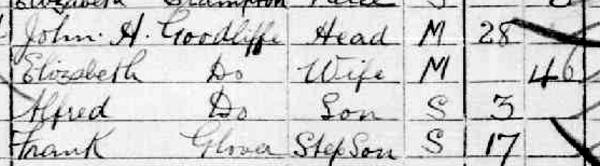 Elizabeth Crampton Niece S
John. H. Goodliffe Head M 28
Elizabeth Do Wife M 46
Alfred Do Son S 3
Frank Glover StepSon S 17